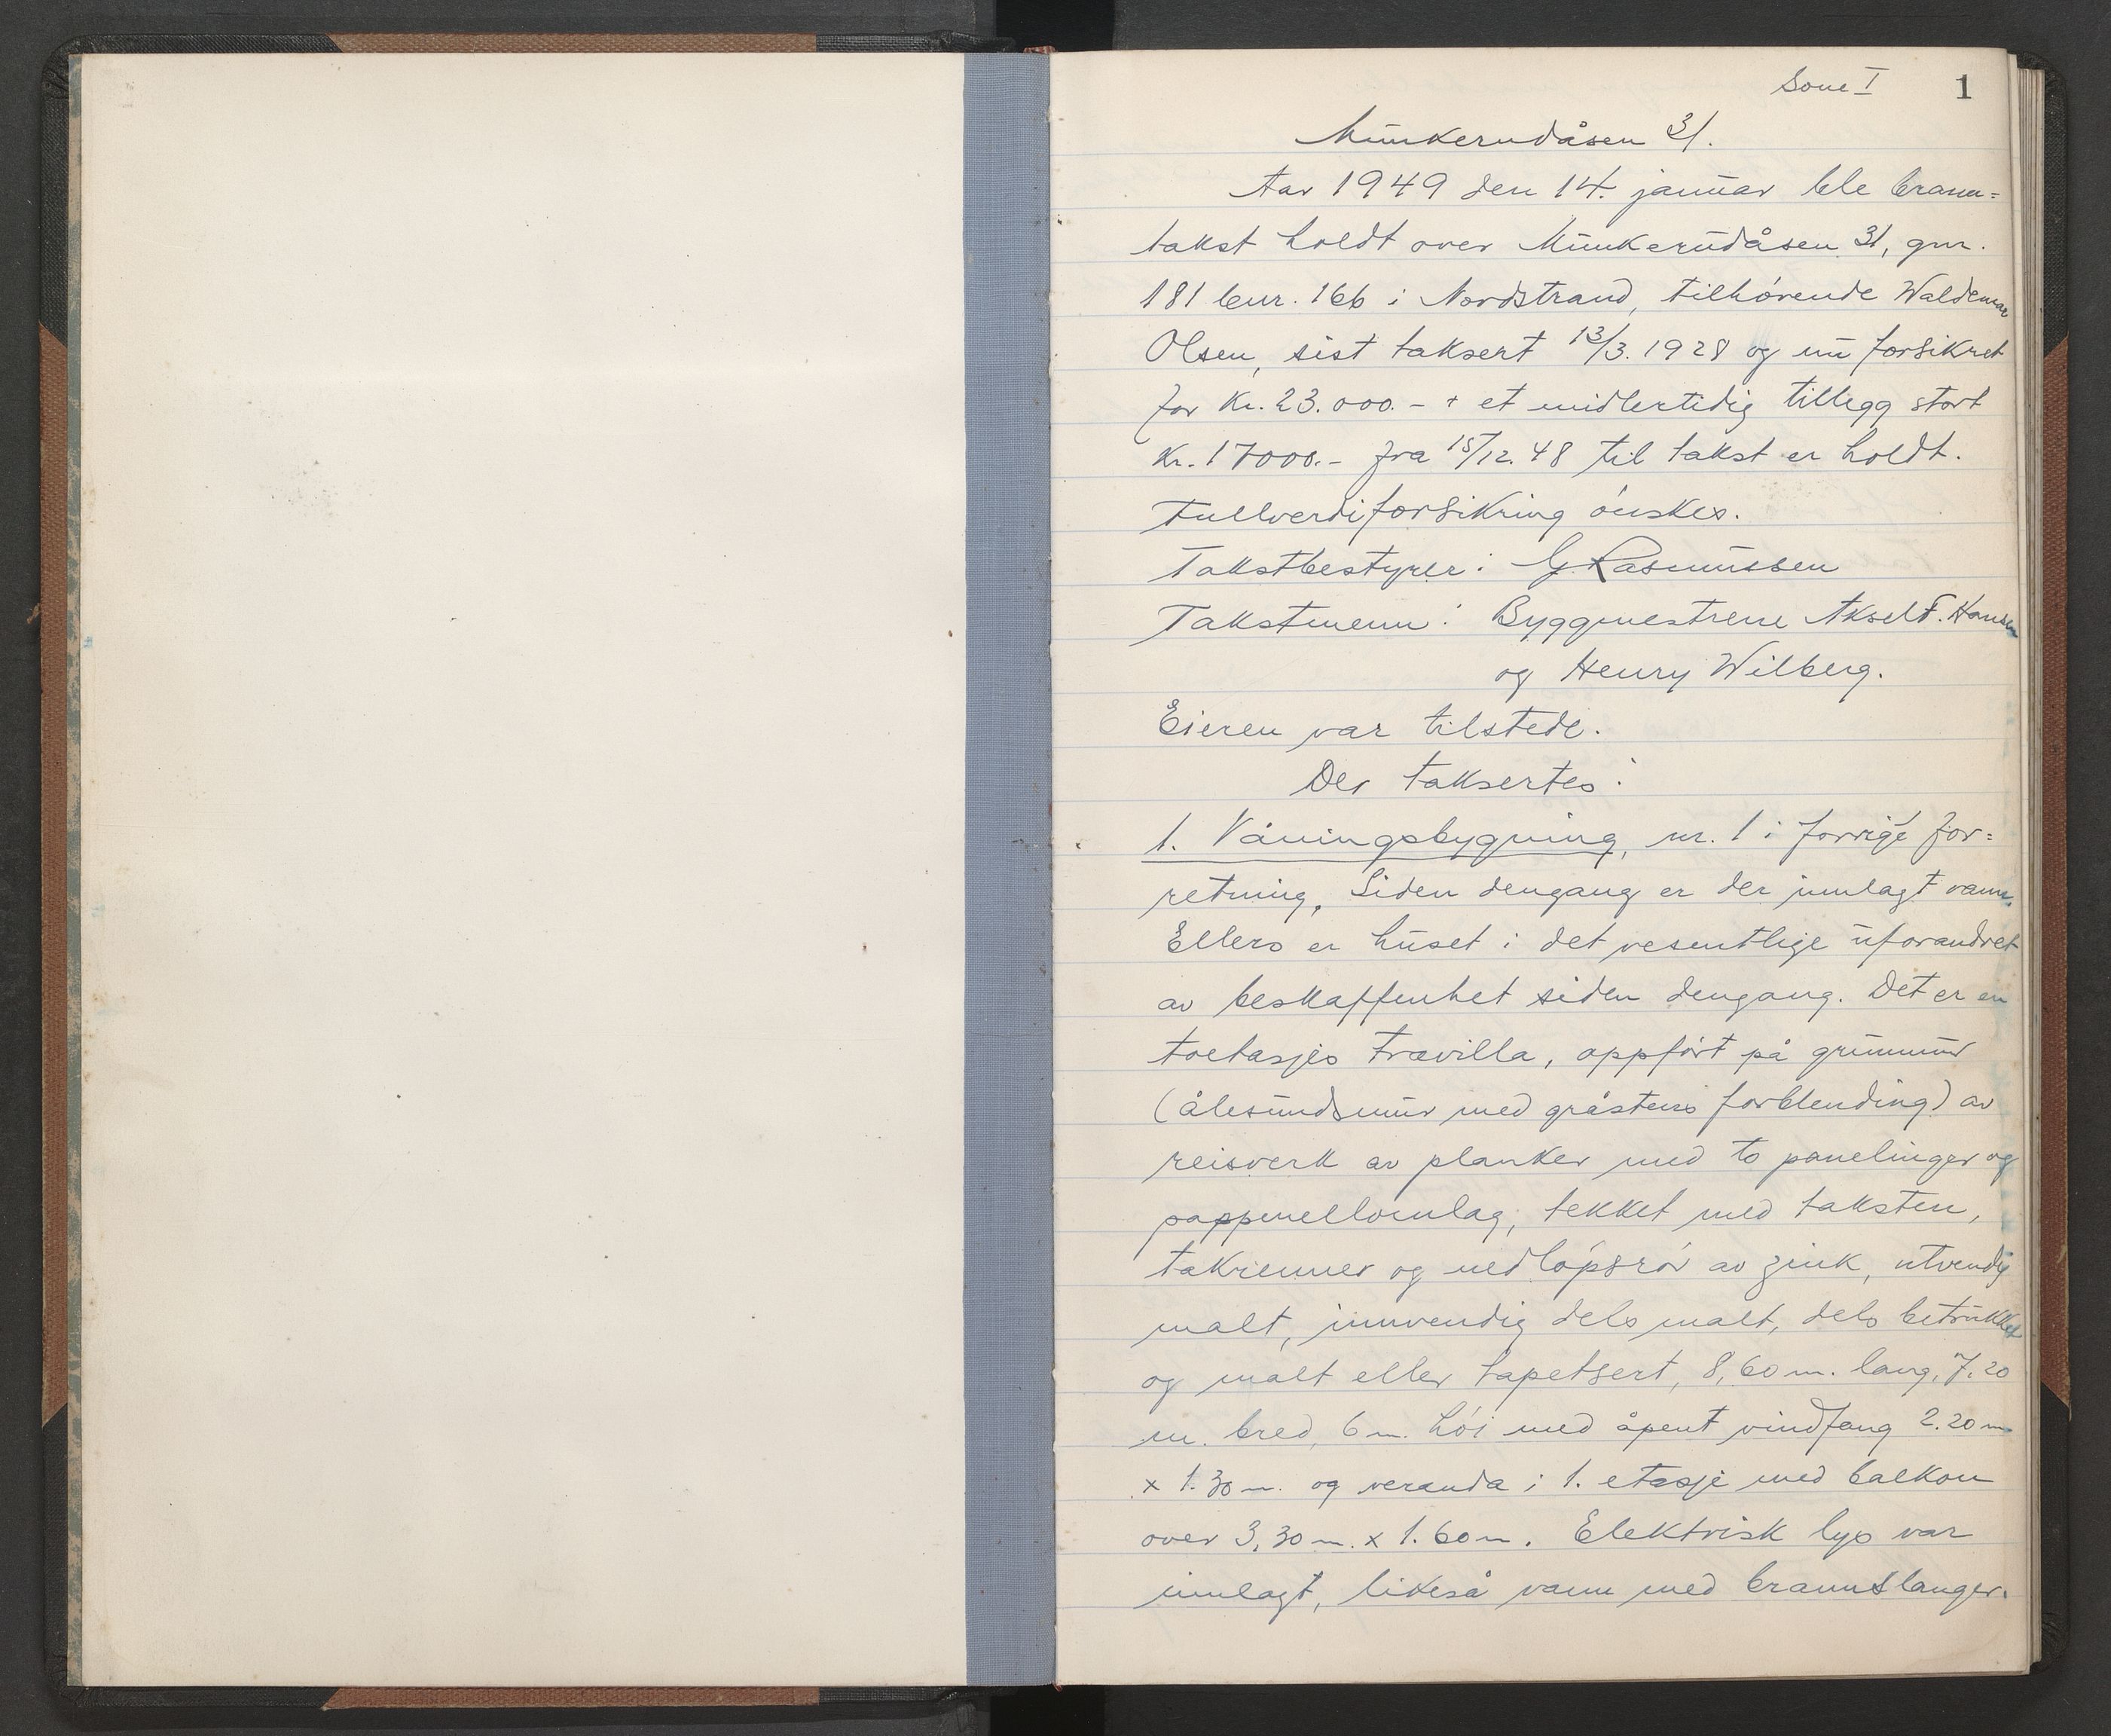 Sone I
1
Munkerudåsen 31.
Aar 1949 den 14. januar ble brann=
takst holdt over Munkerudåsen 31, gnr.
181 bnr. 166 i Nordstrand, tilhørende Waldemar
Olsen, sist taksert 13/3. 1928 og nu forsikret
for Kr. 23.000.- + et midlertidig tillegg stort
Kr. 17000.- fra 15/12. 48 til takst er holdt.
Fullverdiforsikring ønskes.
Takstbestyrer: G. Rasmussen
Takstmenn: Byggmestrene Aksel F. Hansen
og Henry Wilberg.
Eieren var tilstede.
Der taksertes:
1. Våningsbygning, nr. 1 i forrige for=
retning. Siden dengang er der innlagt vann.
Ellers er huset i det vesentlige uforandret
av beskaffenhet siden dengang. Det er en
toetasjes trævilla, oppført på grunnmur
(ålesundsmur med gråstens forblending) av
reisverk av planker med to panelinger og
pappmellomlag, tekket med taksten,
takrenner og nedløpsrør av zink, utvendig
malt, innvendig dels malt, dels betrukket
og malt eller tapetsert, 8,60 m. lang, 7.20
m. bred, 6 m. høi med åpent vindfang 2.20 m
x 1.30 m. og veranda i 1. etasje med balkon
over 3,30 m. x 1.60 m. Elektrisk lys var
innlagt, likeså vann med brannslanger.